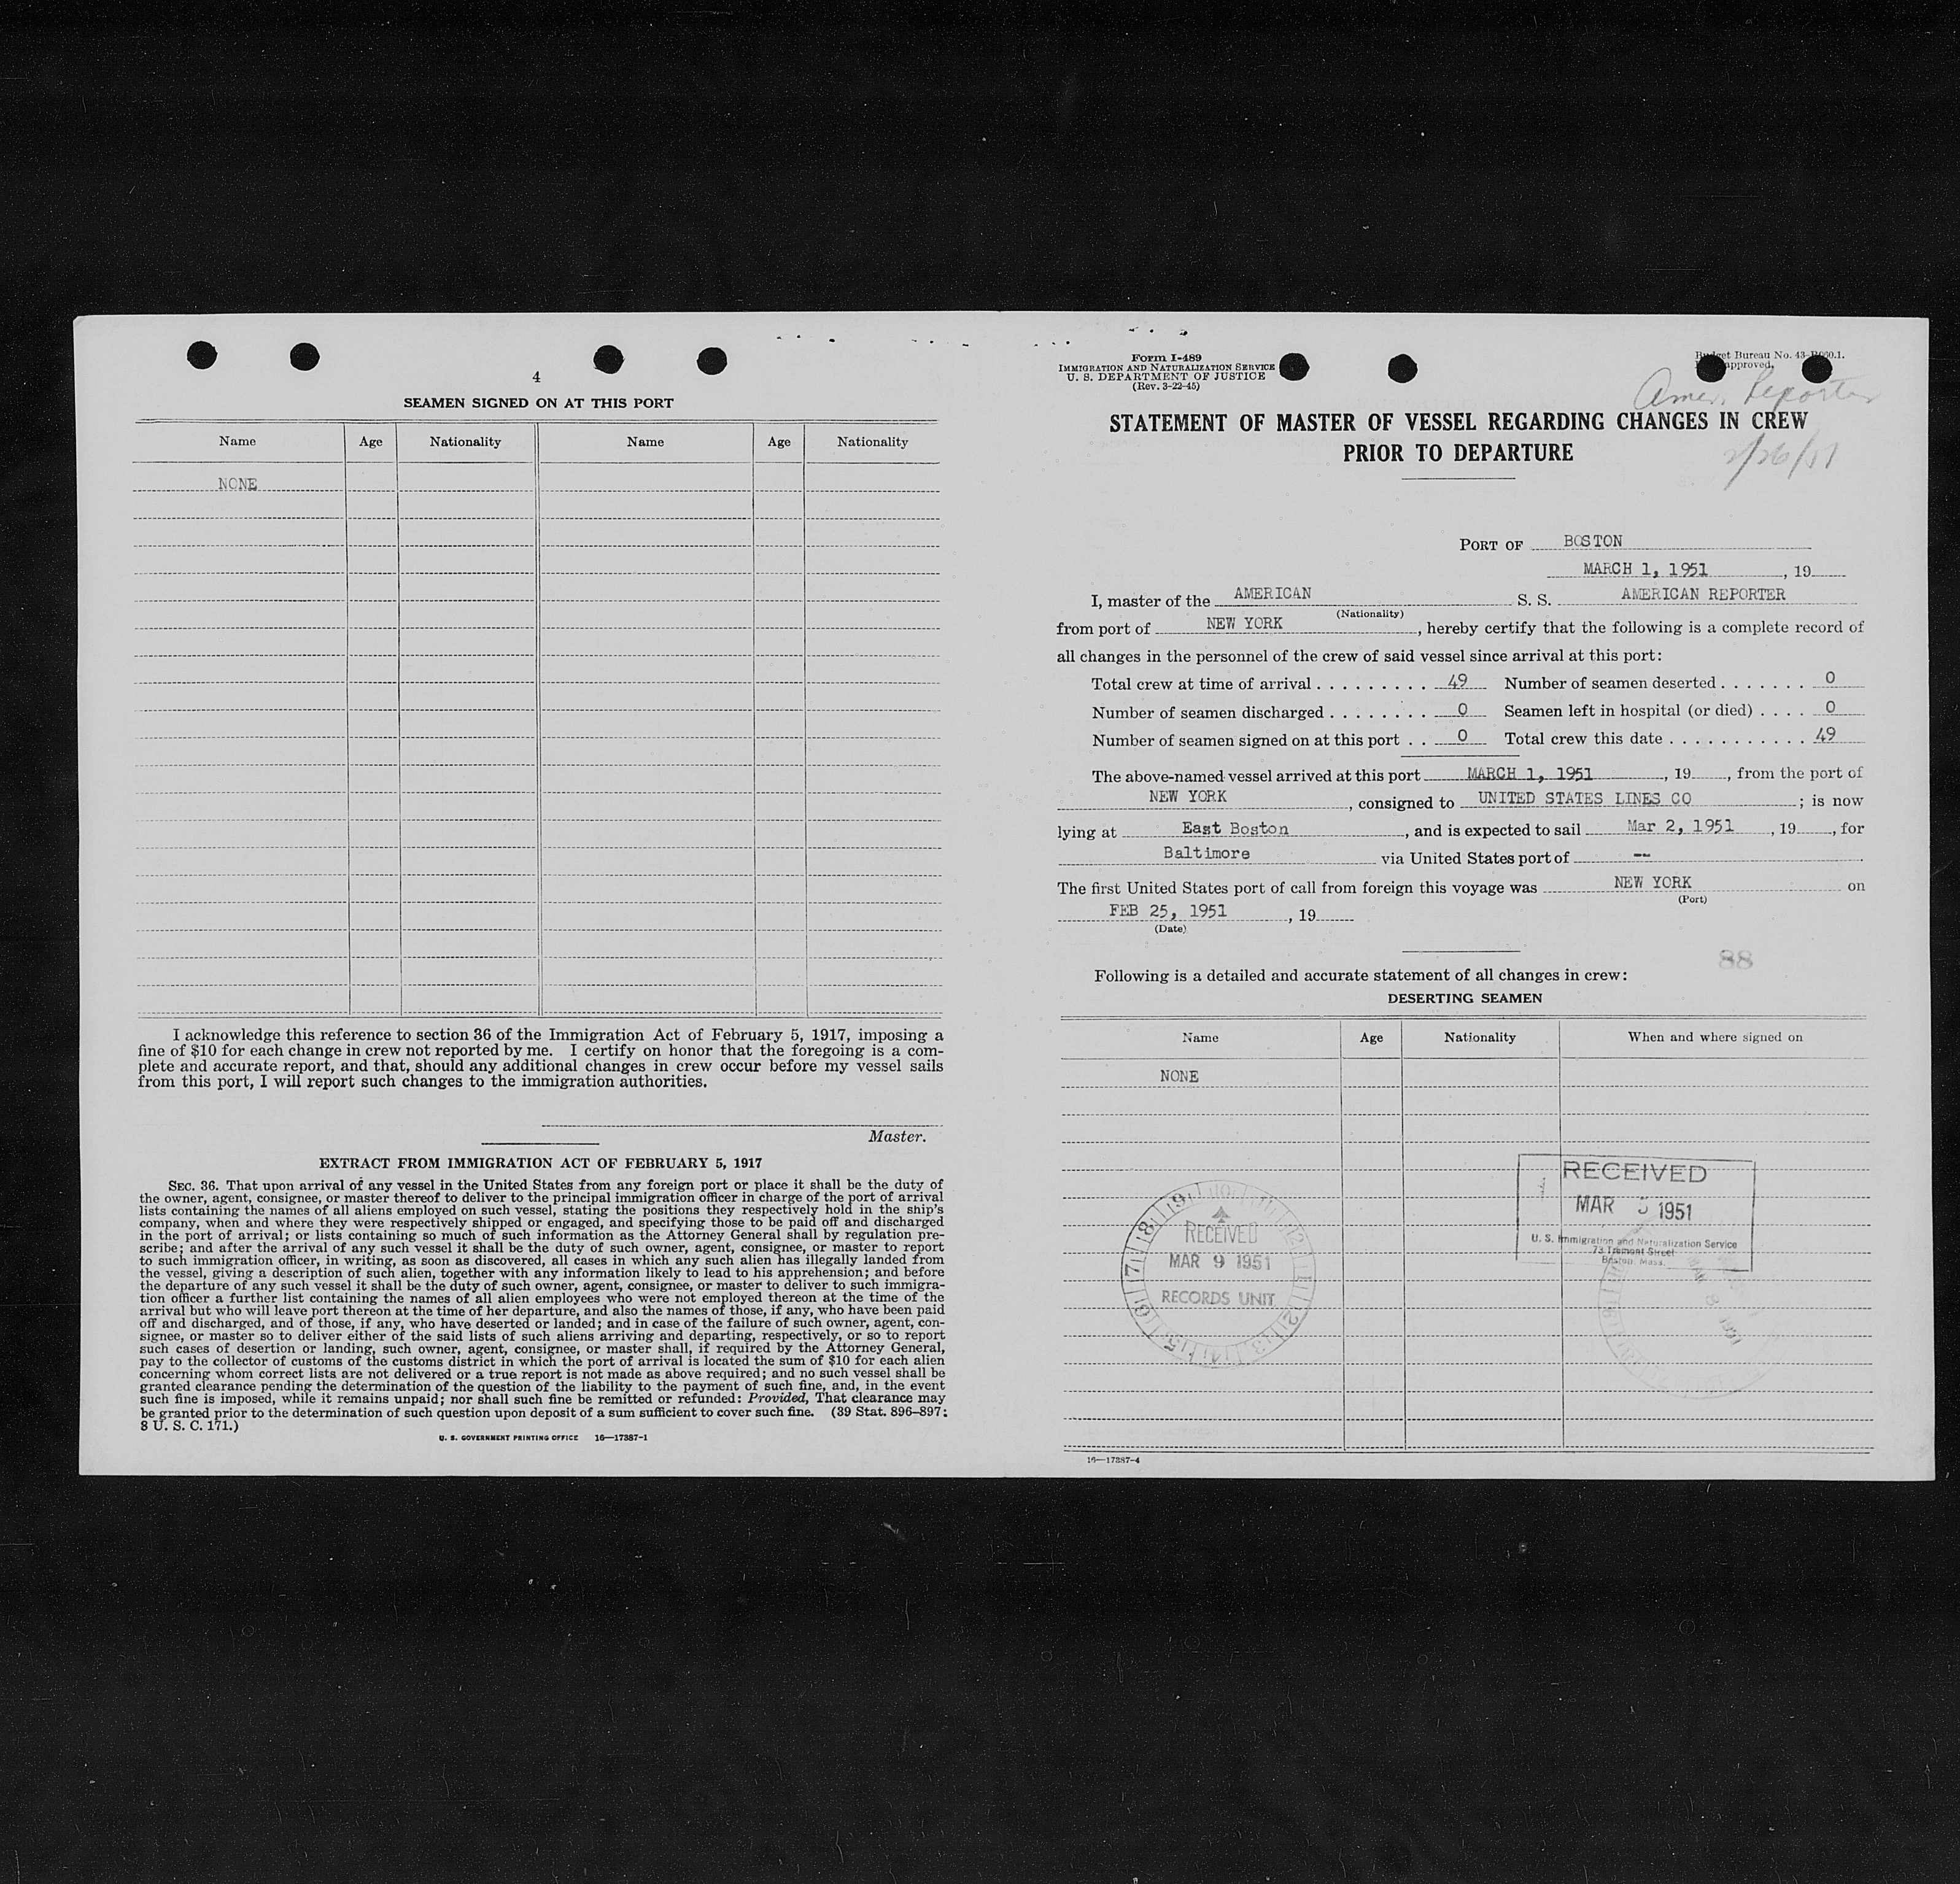 4
SEAMEN SIGNED ON AT THIS PORT
Name Age Nationality Name Age Nationality
NONE
I acknowledge this reference to section 36 of the Immigration Act of February 5, 1917, imposing a
fine of $10 for each change in crew not reported by me. I certify on honor that the foregoing is a com-
plete and accurate report, and that, should any additional changes in crew occur before my vessel sails
from this port, I will report such changes to the immigration authorities.
Master.
EXTRACT FROM IMMIGRATION ACT OF FEBRUARY 5, 1917
SEC. 36. That upon arrival of any vessel in the United States from any foreign port or place it shall be the duty of
the owner, agent, consignee, or master thereof to deliver to the principal immigration officer in charge of the port of arrival
lists containing the names of all aliens employed on such vessel, stating the positions they respectively hold in the ship's
company, when and where they were respectively shipped or engaged, and specifying those to be paid off and discharged
in the port of arrival; or lists containing so much of such information as the Attorney General shall by regulation pre-
scribe; and after the arrival of any such vessel it shall be the duty of such owner, agent, consignee, or master to report
to such immigration officer, in writing, as soon as discovered, all cases in which any such alien has illegally landed from
the vessel, giving a description of such alien, together with any information likely to lead to his apprehension; and before
the departure of any such vessel it shall be the duty of such owner, agent, consignee, or master to deliver to such immigra-
tion officer a further list containing the names of all alien employees who were not employed thereon at the time of the
arrival but who will leave port thereon at the time of her departure, and also the names of those, if any, who have been paid
off and discharged, and of those, if any, who have deserted or landed; and in case of the failure of such owner, agent, con-
signee, or master so to deliver either of the said lists of such aliens arriving and departing, respectively, or so to report
such cases of desertion or landing, such owner, agent, consignee, or master shall, if required by the Attorney General,
pay to the collector of customs of the customs district in which the port of arrival is located the sum of $10 for each alien
concerning whom correct lists are not delivered or a true report is not made as above required; and no such vessel shall be
granted clearance pending the determination of the question of the liability to the payment of such fine, and, in the event
such fine is imposed, while it remains unpaid; nor shall such fine be remitted or refunded: Provided, That clearance may
be granted prior to the determination of such question upon deposit of a sum sufficient to cover such fine. (39 Stat. 896–897;
8 U. S. C. 171.)
U. S. GOVERNMENT PRINTING OFFICE 16—17387-1
Form I-489
IMMIGRATION AND NATURALIZATION SERVICE
U. S. DEPARTMENT OF JUSTICE
(Rev. 3-22-45)
Bureau No.
approved.
Amer. Reporter
STATEMENT OF MASTER OF VESSEL REGARDING CHANGES IN CREW
PRIOR TO DEPARTURE
2/26/51
PORT OF BOSTON
MARCH 1, 1951 , 19
I, master of the AMERICAN S. S. AMERICAN REPORTER
(Nationality)
from port of NEW YORK , hereby certify that the following is a complete record of
all changes in the personnel of the crew of said vessel since arrival at this port:
Total crew at time of arrival . . . . . . . . . 49 Number of seamen deserted . . . . . . . 0
Number of seamen discharged . . . . . . . . 0 Seamen left in hospital (or died) . . . . 0
Number of seamen signed on at this port . . 0 Total crew this date . . . . . . . . . . . 49
The above-named vessel arrived at this port MARCH 1, 1951 , 19 , from the port of
NEW YORK , consigned to UNITED STATES LINES CO ; is now
lying at East Boston , and is expected to sail Mar 2, 1951 , 19 , for
Baltimore via United States port of --
The first United States port of call from foreign this voyage was NEW YORK on
(Port)
FEB 25, 1951 , 19
(Date)
88
Following is a detailed and accurate statement of all changes in crew:
DESERTING SEAMEN
Name Age Nationality When and where signed on
NONE
RECEIVED
MAR 5 1951
U. S. Immigration and Naturalization Service
73 Tremont Street
Boston, Mass.
RECEIVED
MAR 9 1951
RECORDS UNIT
MAR 8 1951
16—17387-4